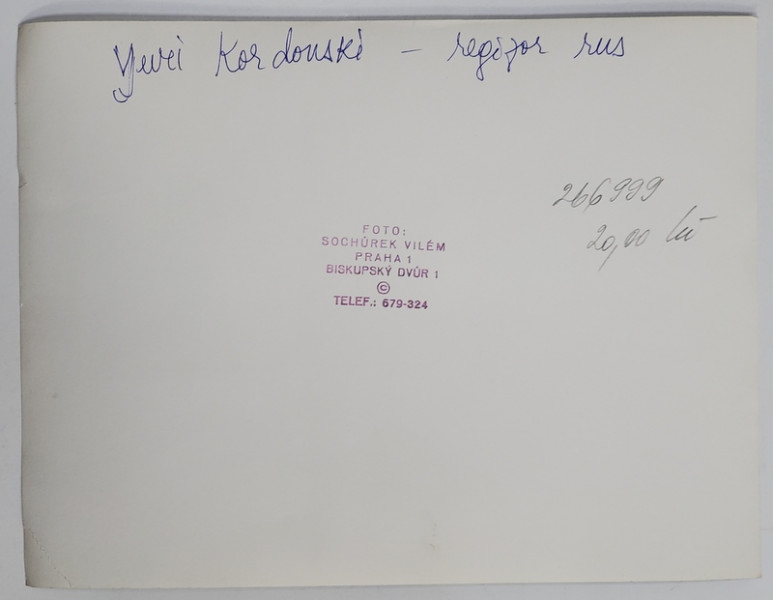 Yuri Kordonski – regizor rus
266999
20,00
FOTO:
SOCHŮREK VILÉM
PRAHA 1
BISKUPSKÝ DVŮR 1
©
TELEF.: 679-324